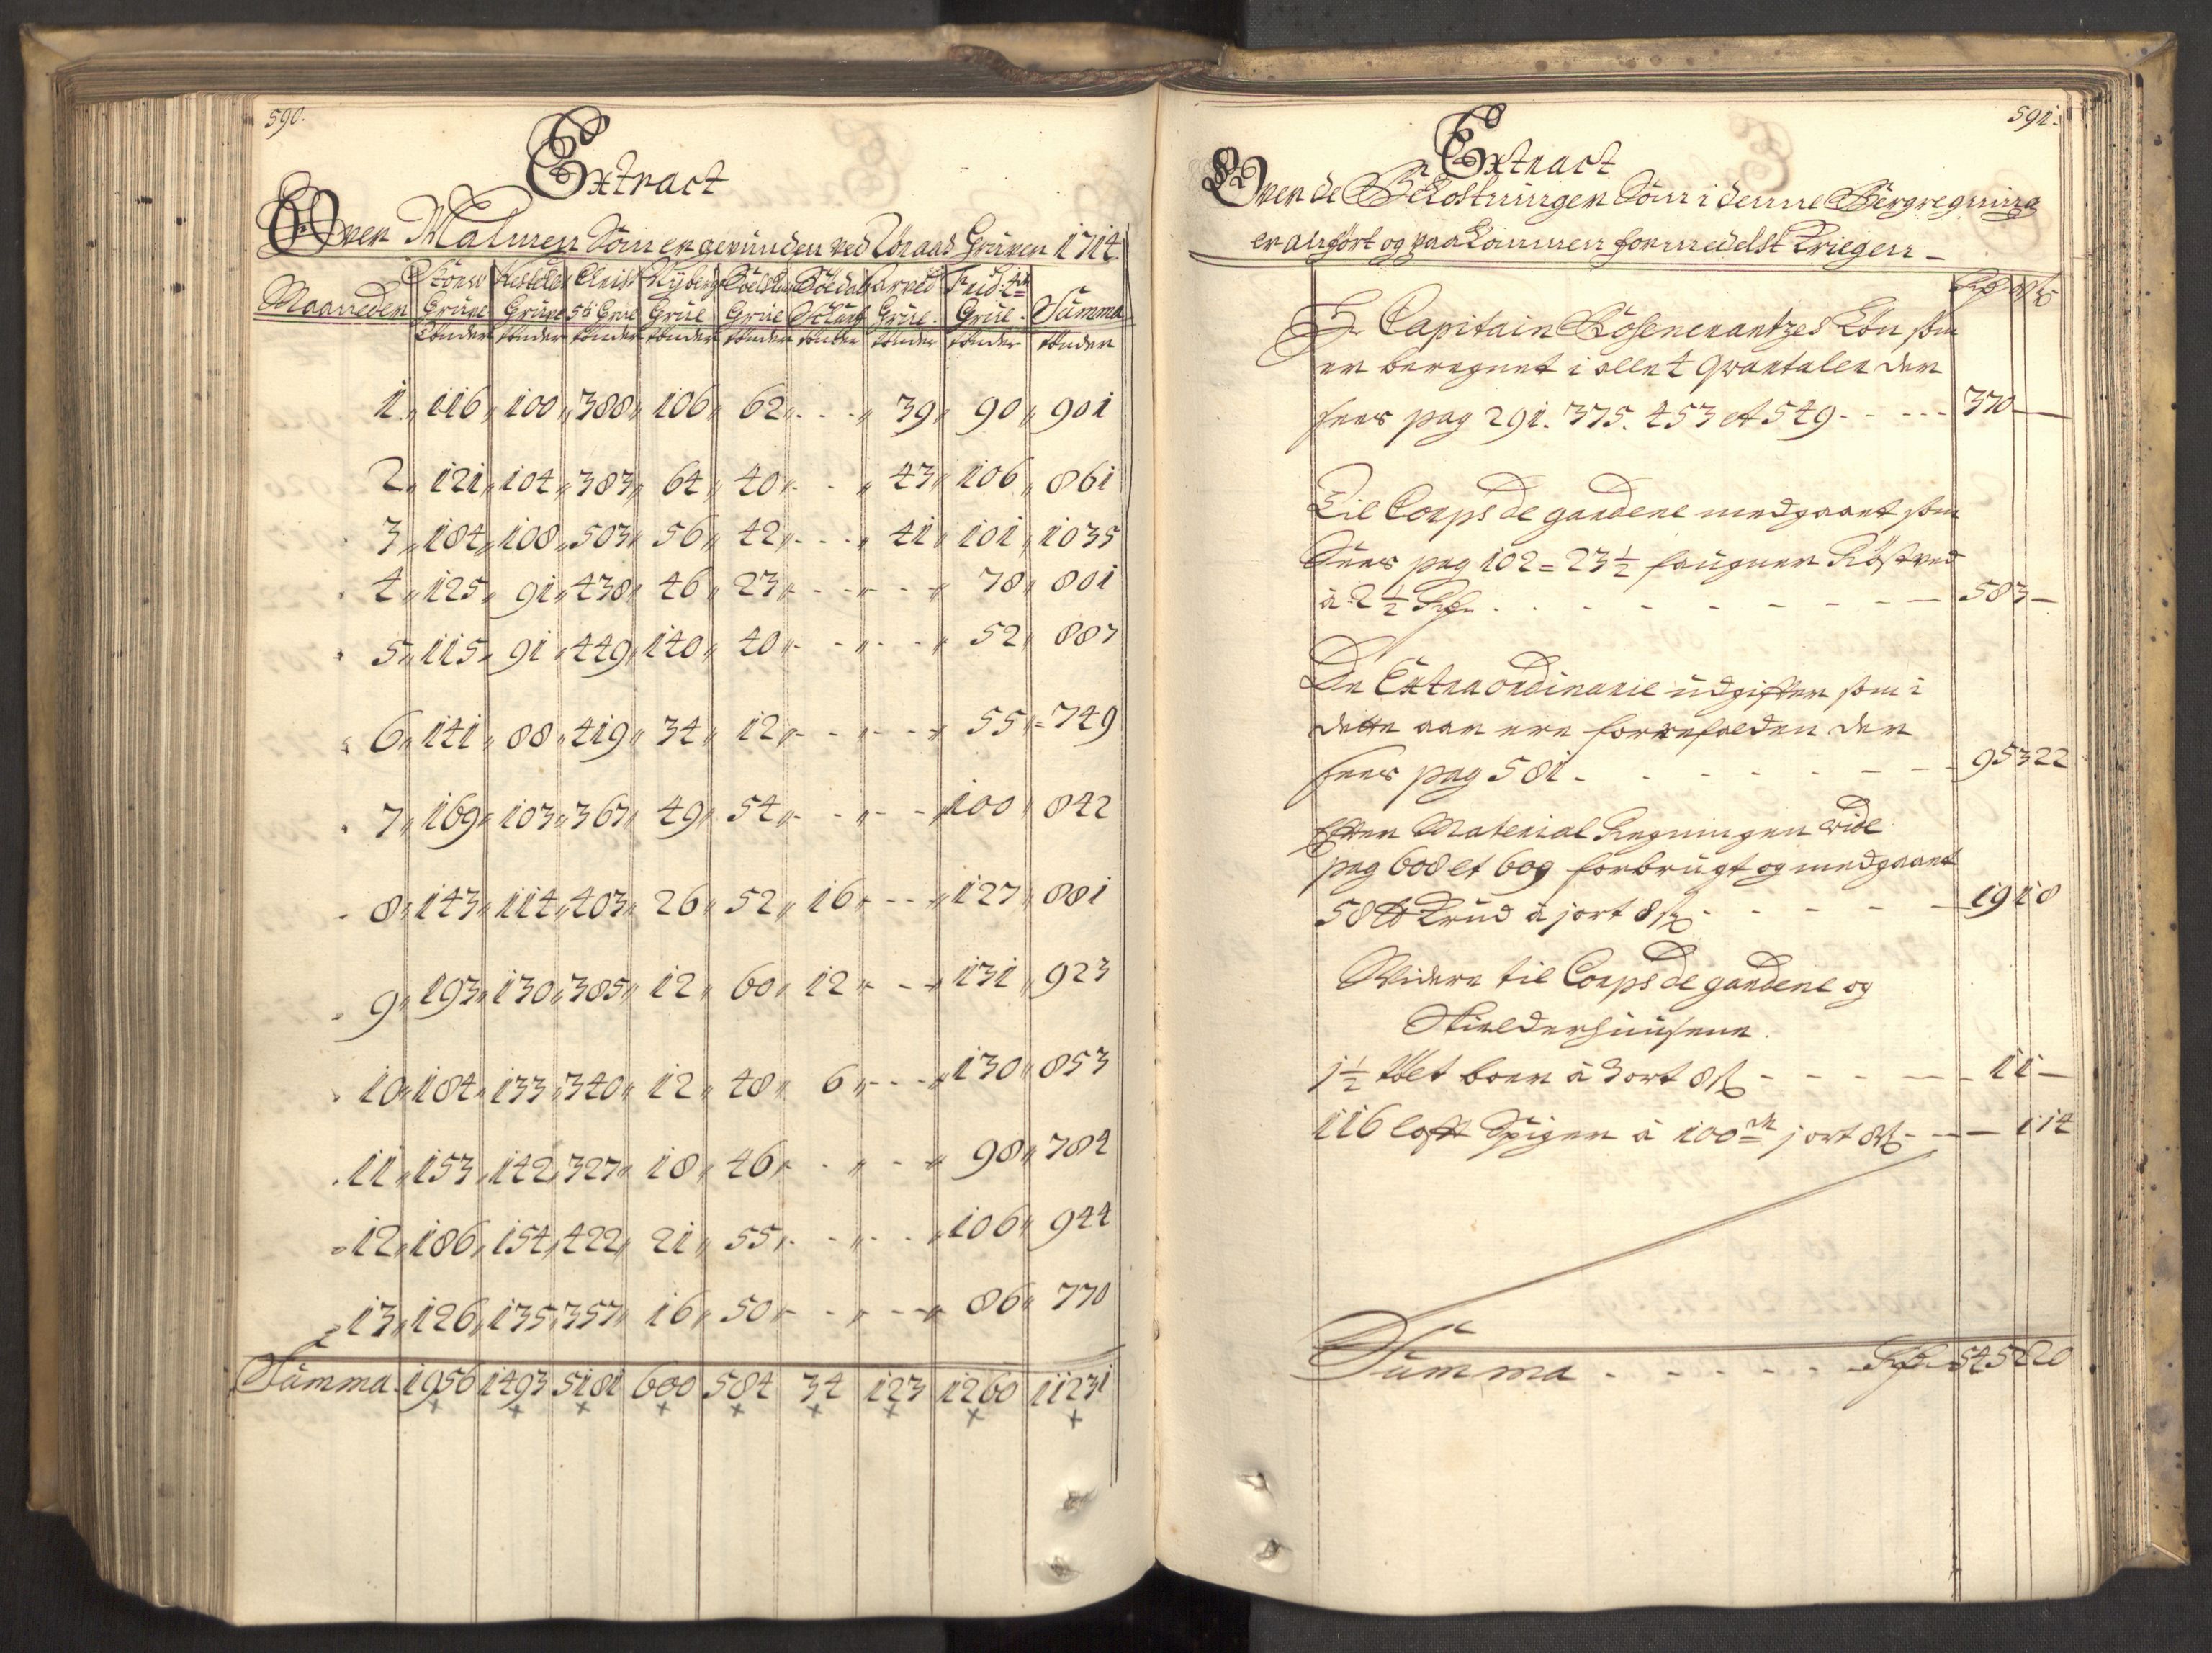 590.
Extract
Over Malmen Som er gevunden ved Røraas Gruven 1714
Maaneder | Storws Gruve | Gruve | Grue | Nyberg Grue | Grue | | Arved Grue | Frid: Grue | Summa
tønder tønder tønder tønder tønder tønder tønder tønder tønder
1 „ 116 „ 100 „ 388 „ 106 „ 62 „ - - „ 39 „ 90 „ 901
2 „ 121 „ 104 „ 383 „ 64 „ 40 „ - - „ 43 „ 106 „ 861
3 „ 184 „ 108 „ 503 „ 56 „ 42 „ - - „ 41 „ 101 „ 1035
4 „ 125 „ 91 „ 438 „ 46 „ 23 „ - - „ - - „ 78 „ 801
5 „ 115 „ 91 „ 449 „ 140 „ 40 „ - - „ - - „ 52 „ 887
6 „ 141 „ 88 „ 419 „ 34 „ 12 „ - - „ - - „ 55 „ 749
7 „ 169 „ 103 „ 367 „ 49 „ 54 „ - - „ - - „ 100 „ 842
8 „ 143 „ 114 „ 403 „ 26 „ 52 „ 16 „ - - „ 127 „ 881
9 „ 193 „ 130 „ 385 „ 12 „ 60 „ 12 „ - - „ 131 „ 923
10 „ 184 „ 133 „ 340 „ 12 „ 48 „ 6 „ - - „ 130 „ 853
11 „ 153 „ 142 „ 327 „ 18 „ 46 „ - - „ - - „ 98 „ 784
12 „ 186 „ 154 „ 422 „ 21 „ 55 „ - - „ - - „ 106 „ 944
13 „ 126 „ 135 „ 357 „ 16 „ 50 „ - - „ - - „ 86 „ 770
Summa 1956 1493 5181 600 584 34 123 1260 11231
591.
Extract
Over de Bekostninger Som i denne Bergregning
er anført og paakommen formedelst Kriegen
Hr Capitain Rosencrantzes Løn som
er beregnet i alle 4 qvartaler der
sees pag 291. 375. 453 et 549 - - - - 370 —
Til Corps de gardene medgaaet som
Sees pag 102 = 23 1/2 faugner Røstved
à 2 1/2 Rdr - - - - - - 58 3 —
De Extraordinarie udgifter som i
dette aar ere forrefalden der
sees pag 581 - - - - - - 95 3 22
Efter Material Regningen vide
pag 608 et 609 forbrugt og medgaaet
58 ℔ Krud à 1 ort 8 s - - - - - 19 1 8
Videre til Corps de gardene og
Skielderhuusene
1 1/2 tolt boer à 3 ort 8 s - - - - 1 1 —
116 loft Spiger à 100 1 ort 8 s - - — 1 14
Summa - - - - - - Rdr 545 2 20